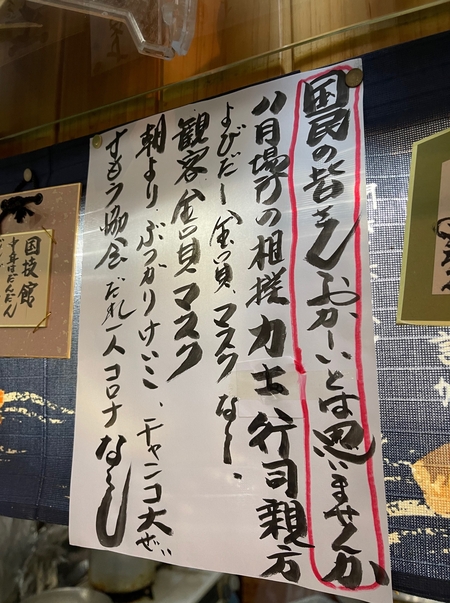 国民の皆さんおかしいとは思いませんか
八月場所の相撲力士行司親方
よびだし全員マスクなし、
観客全員マスク
朝より、ぶつかりけいこ、チャンコ大ぜい
すもう協会だれ一人コロナなし
国技館